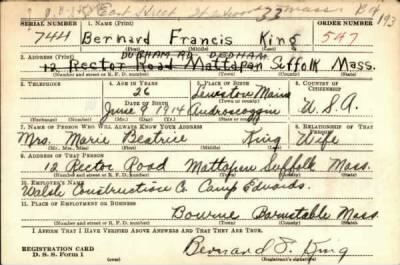 33 Mass
SERIAL NUMBER 1. NAME (Print) ORDER NUMBER
744 Bernard Francis King 547
(First) (Middle) (Last)
DURHAM RD DEDHAM
2. ADDRESS (Print)
12 Rector Road Mattapan Suffolk Mass.
(Number and street or R. F. D. number) (Town) (County) (State)
3. TELEPHONE 4. AGE IN YEARS 5. PLACE OF BIRTH 6. COUNTRY OF CITIZENSHIP
26 Lewiston Maine
DATE OF BIRTH
June 9 1914 Androscoggin U.S.A.
(Exchange) (Number) (Mo.) (Day) (Yr.) (Town or county) (State or country)
7. NAME OF PERSON WHO WILL ALWAYS KNOW YOUR ADDRESS 8. RELATIONSHIP OF THAT PERSON
Mrs. Marie Beatrice King Wife
(Mr., Mrs., Miss) (First) (Middle) (Last)
9. ADDRESS OF THAT PERSON
12 Rector Road Mattapan Suffolk Mass.
(Number and street or R. F. D. number) (Town) (County) (State)
10. EMPLOYER'S NAME
Walsh Construction Co Camp Edwards.
11. PLACE OF EMPLOYMENT OR BUSINESS
Bourne Barnstable Mass.
(Number and street or R. F. D. number) (Town) (County) (State)
I AFFIRM THAT I HAVE VERIFIED ABOVE ANSWERS AND THAT THEY ARE TRUE.
REGISTRATION CARD
D. S. S. Form 1
Bernard F. King
(Registrant's signature)